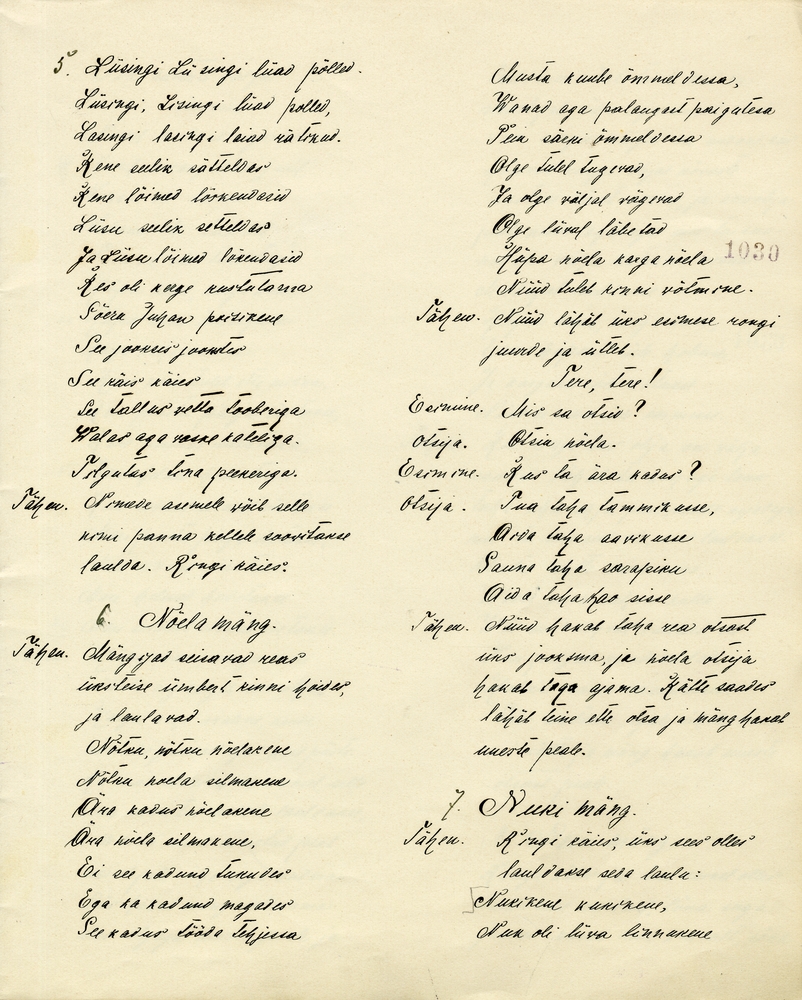 5. Liisingi Liisingi liiad põlled.
Liisingi, Lisingi liiad polled,
Lasingi lasingi laiad rätikud.
Kene seelik sätteldas
Kene lõimed lõrkendasid
Liisu seelik setteldas
Ja Liisu lõimed lõkendasid
Kes oli kerge kustutama
Sõerk Juhan poisikene
See jooksis joostes
See käis käies
See tallus vetta tooberiga
Walas aga vaske kateliga.
Tilgutas tina peekeriga.
Tähen. Nimede asemele võib selle
nimi panna kellele soovitakse
laulda. Ringi käies.
6. Nõela mäng.
Tähen. Mängijad seisavad reas
üksteise ümbert kinni hoides,
ja laulavad.
Nõtku, nõtku nõelakene
Nõtku noela silmakene
Ära kadus nõelakene
Ära nõela silmakene,
Ei see kadund tukudes
Ega ka kadund magades
See kadus tööda tehjessa
Musta kuube õmmeldessa,
Wanad aga palangast paigutesa
Peik säeki õmmeldessa
Olge tulel tugevad,
Ja olge väljal vägevad
Olge liival läbetad
Hüpa nõela karga nõela
1030
Nüüd tuleb kinni võtmine.
Tähen. Nüüd lähäb üks esimese rongi
juurde ja ütleb.
Tere, tere!
Esimine. Mis sa otsid?
Otsija. Otsin nõela.
Esimine. Kus ta ära kadus?
Otsija. Tua taha tammikusse,
Aida taha aavikusse
Sauna taha sarapiku
Aida taha hao sisse
Tähen. Nüüd hakab taha rea otsast
üks jooksma, ja nõela otsija
hakab taga ajama. Kätte saades
lähäb teine ette otsa ja mäng hakab
uueste peale.
7. Nuki mäng.
Tähen. Ringi käies, üks sees olles
lauldakse seda laulu:
Nukikene kukikene,
Nuk oli liiva linnukene